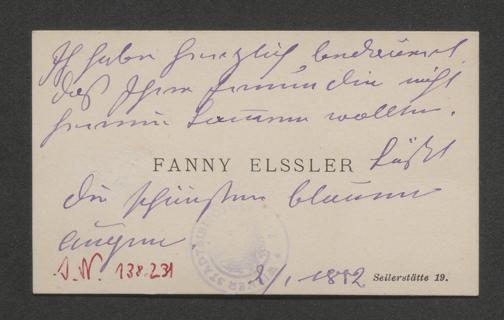 Ich habe herzlich bedauert,
daß Ihre Freundin nicht
herein kommen wollte.
FANNY ELSSLER küßt
die schönsten blauen
Augen.
I.N. 138.231
2/1 1882 Seilerstätte 19.